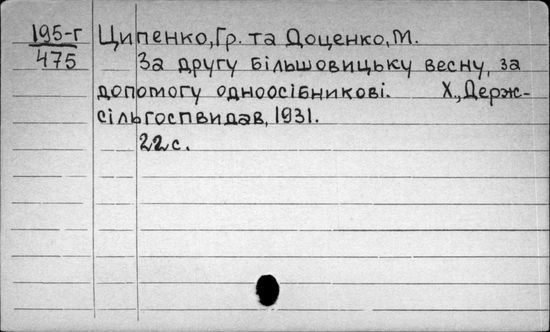 195-г Ципенко, Гр. та Доценко, М.
475 За другу більшовицьку весну, за
допомогу одноосібникові. Х., Держ-
сільгоспвидав, 1931.
22 с.